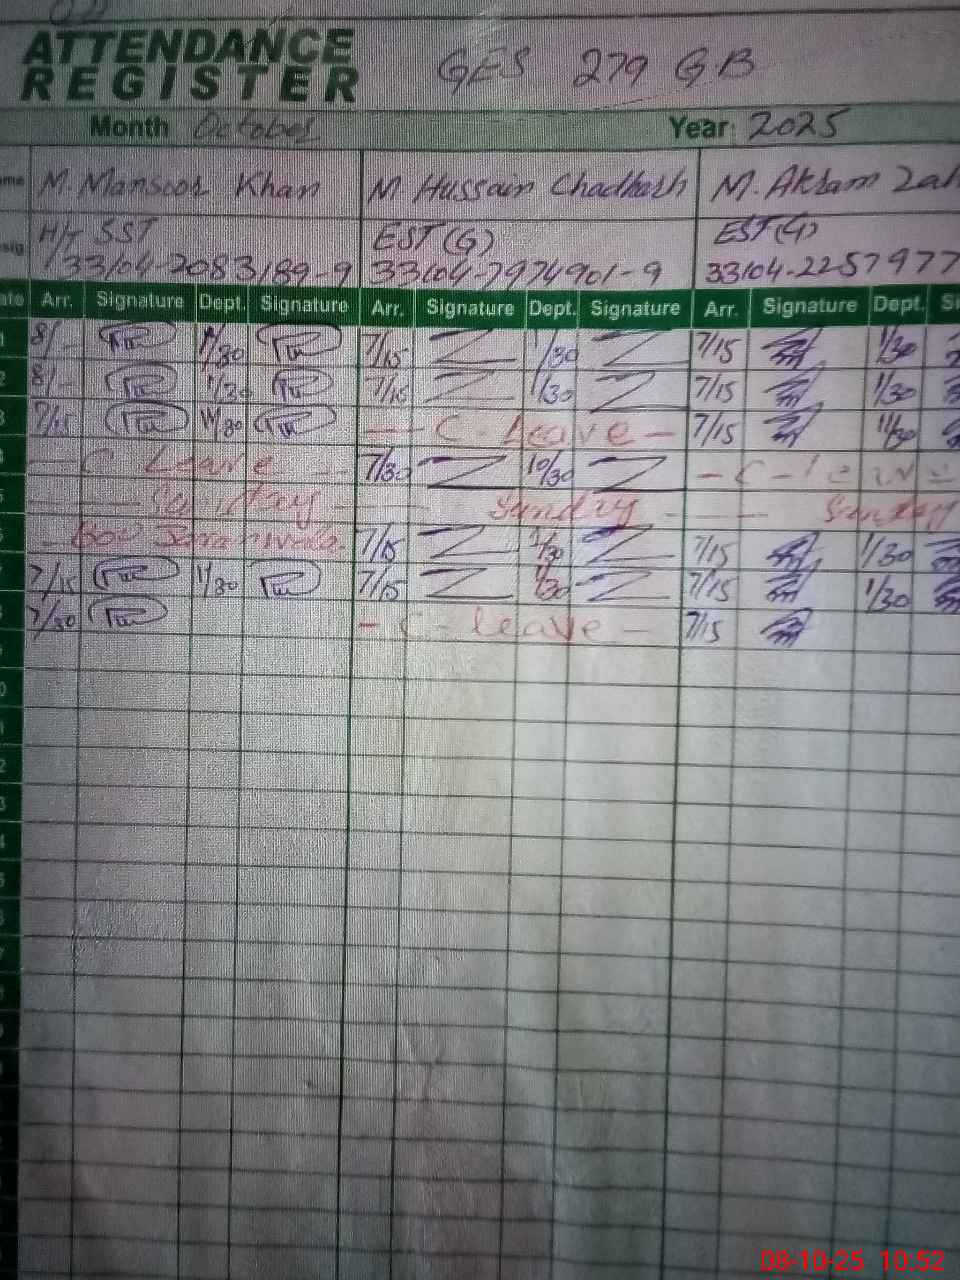 ATTENDANCE
REGISTER GES 279 GB
Month October Year 2025
M. Mansoor Khan M Hussain Chadharh M. Akram
H/T SST EST (G) EST (G)
33104-2083189-9 33104-7974901-9 33104-2257977
Arr. Signature Dept. Signature Arr. Signature Dept. Signature Arr. Signature Dept.
8/- 1/30 7/15 1/30 7/15 1/30
8/- 1/30 7/15 1/30 7/15 1/30
7/15 11/30 - C - Leave - 7/15 11/30
- C Leave - 7/30 10/30 - C - leave
Sunday - Sunday - Sunday
7/15 1/30 7/15 1/30
7/15 1/30 7/15 1/30 7/15 1/30
7/30 - C - leave - 7/15
08-10-25 10:52